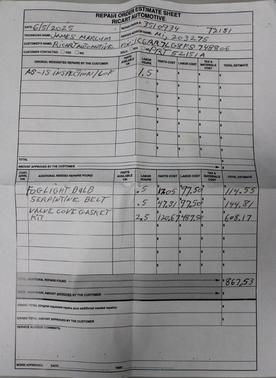 REPAIR ORDER ESTIMATE SHEET
RICART AUTOMOTIVE
DATE 6/5/2025
7510934 T2181
TECHNICIAN NAME: JAMES MARCUM
Mi, 203275
CUSTOMER'S NAME: RICART AUTOMOTIVE
CUSTOMER CONTACTED: YES NO
ORIGINAL REQUESTED REPAIRS BY CUSTOMER PARTS AVAILABLE LABOR HOURS PARTS COST LABOR COST TAX & MATERIALS COST TOTAL ESTIMATE
AS-IS INSPECTION/ 1.5
TOTAL
AMOUNT APPROVED BY THE CUSTOMER
ADDITIONAL NEEDED REPAIRS FOUND PARTS AVAILABLE LABOR HOURS PARTS COST LABOR COST TAX & MATERIALS COST TOTAL ESTIMATE
FOGLIGHT BULB .5 97.50 114.55
SERPINTINE BELT .5 47.31 97.50 144.81
VALVE COVE GASKET KIT 2.5 120.67 487.50 608.17
ADDITIONAL REPAIR FOUND 867.53
ADDITIONAL AMOUNT APPROVED BY THE CUSTOMER
GRAND TOTAL (original requested repairs plus additional needed repairs)
GRAND TOTAL AMOUNT APPROVED BY THE CUSTOMER
SERVICE ADVISOR COMMENTS:
WORK APPROVED: DATE: TIME: